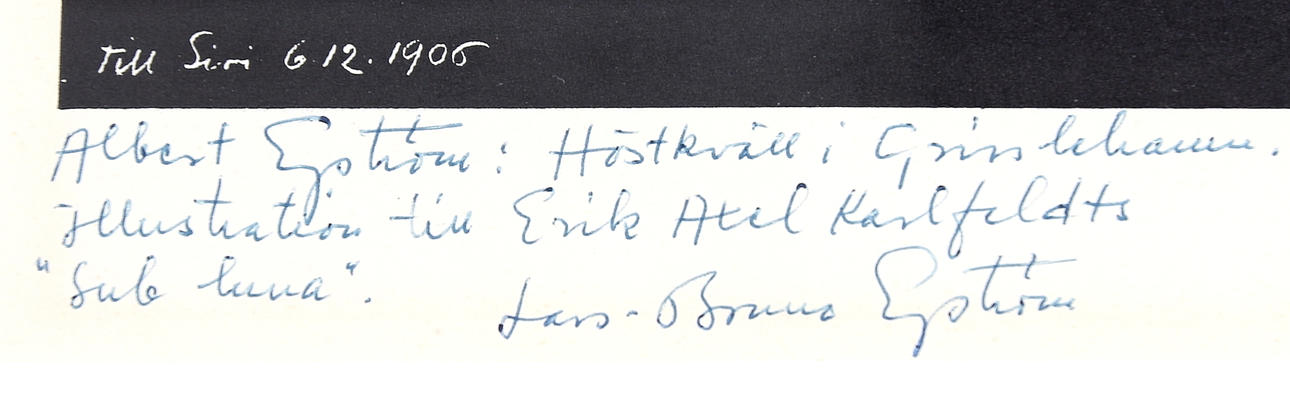 till Siri 6.12.1906
Albert Engström: Höstkväll i Grisslehamn.
Illustration till Erik Axel Karlfeldts
"Sub luna".
Lars-Bruno Engström